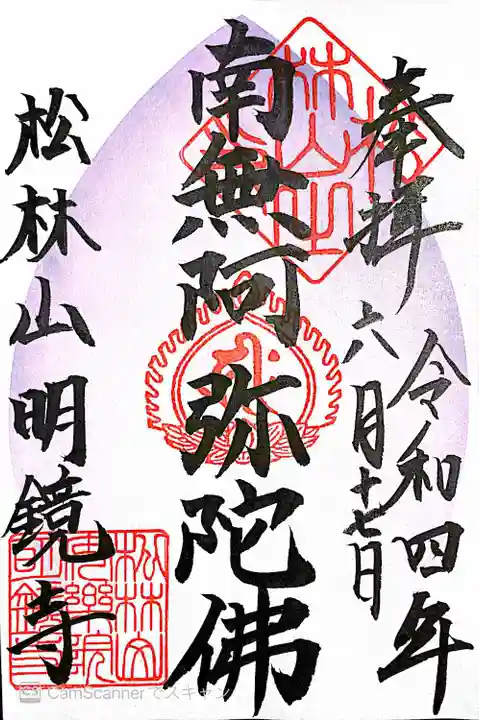 奉拝
令和四年
六月十七日
南無阿弥陀佛
松林山明鏡寺
松林山
CamScannerでスキャン